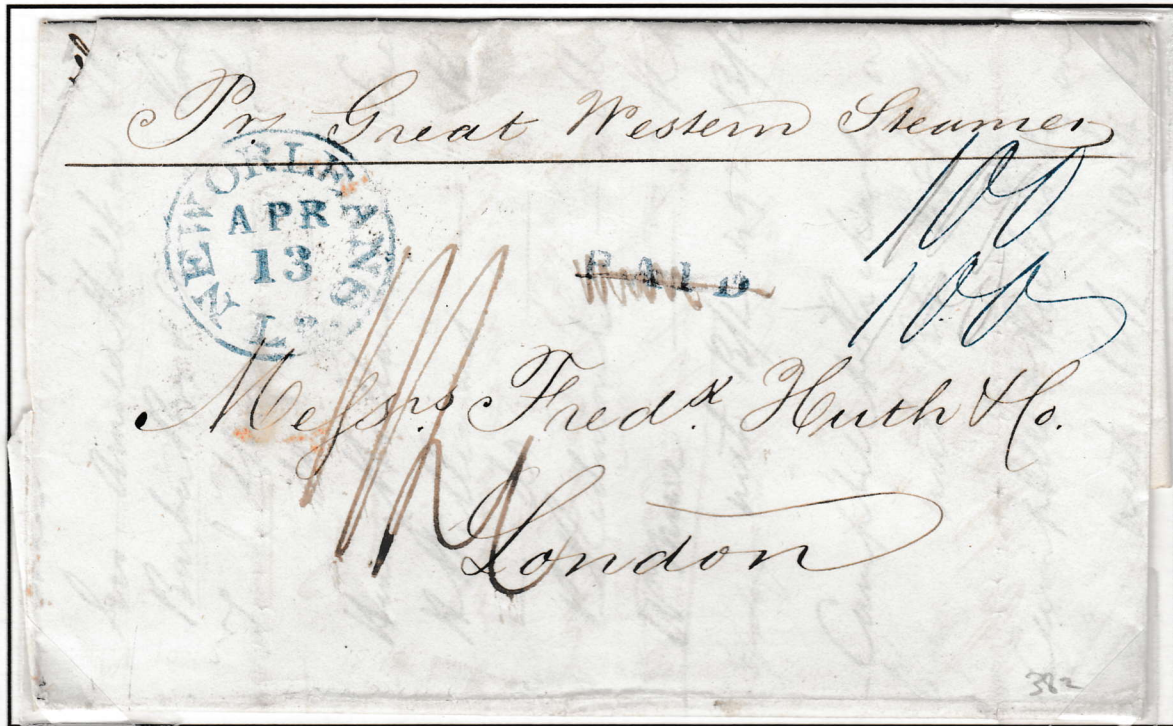 Pr. Great Western Steamer
NEW ORLEANS La
APR
13
PAID
100
100
Messrs. Fredk. Huth & Co.
London
382